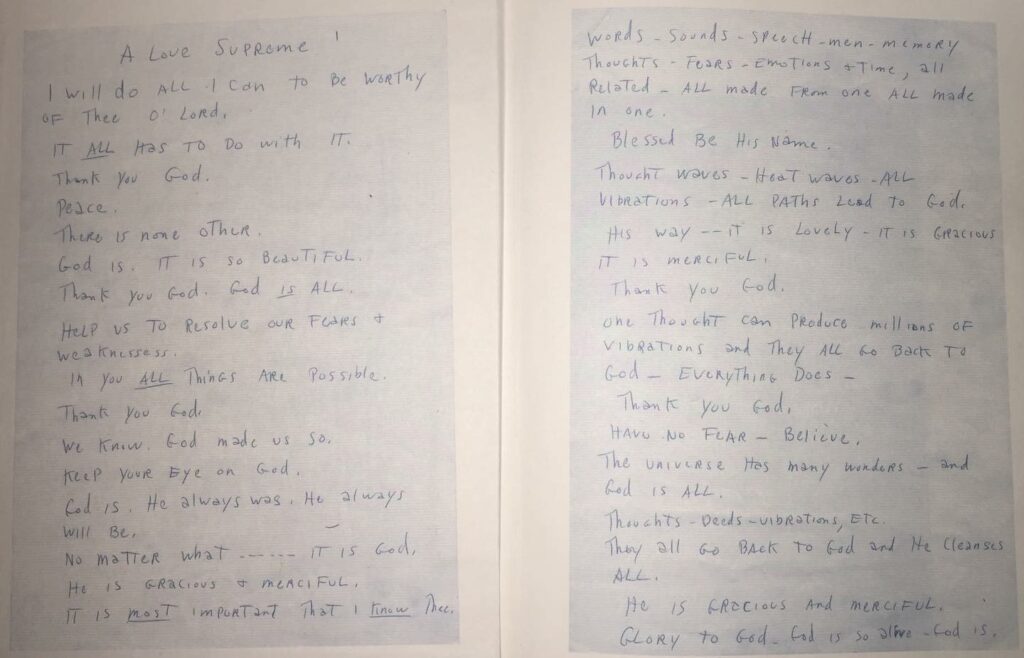 A Love Supreme 1
I will do ALL I can to Be worthy
OF Thee O' Lord,
IT ALL HAS TO DO with IT.
Thank you God.
Peace.
There is none other.
God is. IT IS SO BeauTiFUL.
Thank you God. God is ALL.
HELP US TO Resolve our Fears &
weaknessess.
In you ALL Things ARE Possible.
Thank you God.
We Know. God made us so.
Keep your Eye on God.
God is. He always was. He always
will Be.
No matter what ------ IT is God.
He is GRacious & merciful.
IT IS most important That I Know Thee.
Words - Sounds - SPEECH - men - memory
Thoughts - Fears - Emotions & Time, all
Related - ALL made From one ALL made
In one.
Blessed Be His Name.
Thought waves - Heat waves - ALL
vibrations - ALL PATHs Lead to God.
His way -- IT is Lovely - IT is GRacious
IT is merciful.
Thank you God.
one Thought can Produce millions of
vibrations and They ALL Go Back To
God - EveryThing Does -
Thank you God.
Have No Fear - Believe.
The universe Has many wonders - and
God is ALL.
Thoughts - Deeds - vibrations, ETC.
They all Go Back to God and He cleanses
ALL.
He is GRacious And merciful.
GLORY to God - God is so alive - God is.